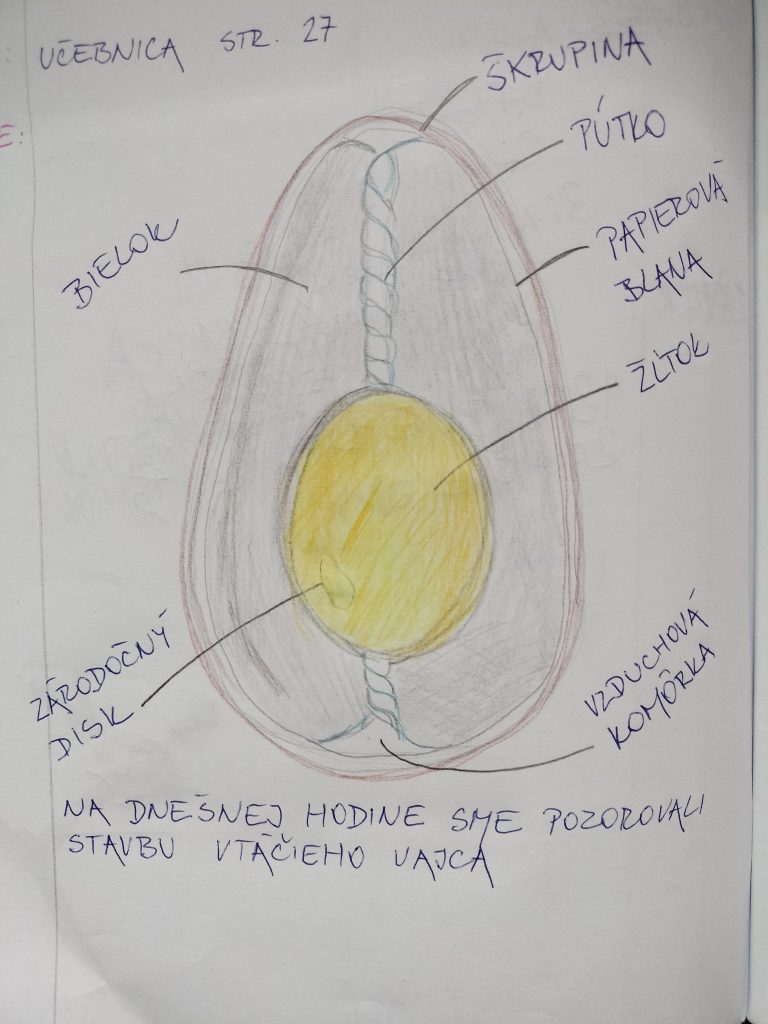 UČEBNICA STR. 27
E:
ŠKRUPINA
PÚTKO
PAPIEROVÁ
BLANA
BIELOK
ŽĹTOK
ZÁRODOČNÝ
DISK
VZDUCHOVÁ
KOMÔRKA
NA DNEŠNEJ HODINE SME POZOROVALI
STAVBU VTÁČIEHO VAJCA